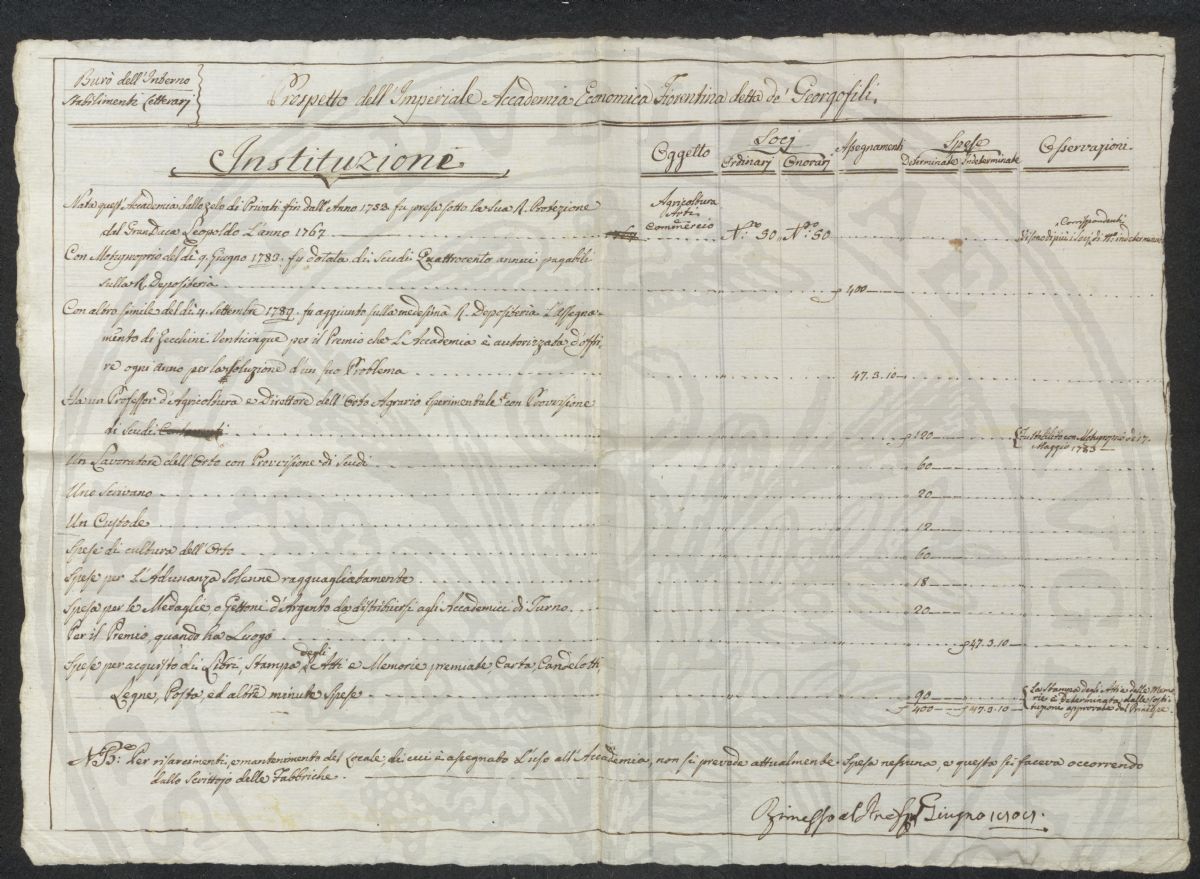 Burò dell'Interno
Stabilimenti Letterarj
Prospetto dell'Imperiale Accademia Economica Fiorentina detta de' Georgofili.
Instituzione.
Oggetto
Socj
Ordinarj Onorarj
Assegnamenti
Spese
Determinate Indeterminate
Osservazioni
Nata quest'Accademia dallo zelo di Privati fin dall'Anno 1753 fu presa sotto la sua R. Protezione
dal Gran Duca Leopoldo L'anno 1767
Agricoltura
Arti
Commercio
N.ro 50 N.ro 50
Corrispondenti
Vi sono di più i Socj di N.ro indeterminato
Con Motuproprio del dì 9. Giugno 1783. fu dotata di Scudi Quattrocento annui pagabili
sulla R. Depositeria 400
Con altro simile del dì 4. Settembre 1789. fu aggiunto sulla medesima R. Depositeria L'Assegna-
mento di Zecchini Venticinque per il Premio che L'Accademia è autorizzata d'offri-
re ogni anno per la soluzione d'un suo Problema 47.3.10
Ha un Professor d'Agricoltura e Direttore dell'Orto Agrario Sperimentale con Provvisione
di Scudi 120
Fu stabilito con Motuproprio de 17.
Maggio 1783
Un Lavoratore dell'Orto con Provvisione di Scudi 60
Uno Scrivano 20
Un Custode 12
Spese di cultura dell'Orto 60
Spese per L'Adunanza Solenne ragguagliatamente 18
Spesa per le Medaglie o Gettoni d'Argento da distribuirsi agli Accademici di Turno 20
Per il Premio, quando ha Luogo 47.3.10
Spese per acquisto di Libri, Stampa degli Atti e Memorie premiate, Carta, Candelotti,
Legne, Posta, ed altre minute Spese 90
400 47.3.10
La Stampa degli Atti e delle Memo-
rie è Determinata dalle Costi-
tuzione approvate dal Principe.
NB: Per risarcimenti, e mantenimento del Locale, di cui è assegnato L'uso all'Accademia, non si prevede attualmente Spesa nessuna, e questa si faceva occorrendo
dallo Scrittojo delle Fabbriche.
Rimesso al Giugno